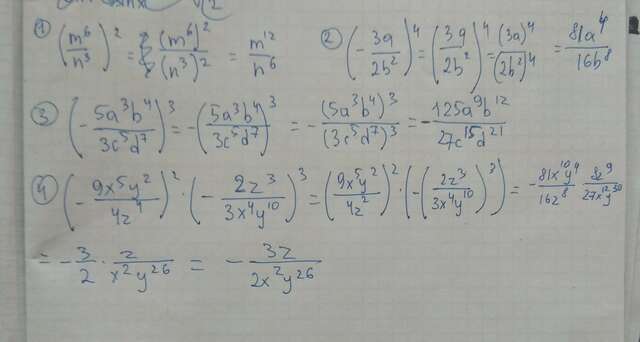 1) (m⁶/n³)² = (m⁶)²/(n³)² = m¹²/n⁶
2) (-3a/2b²)⁴ = (3a/2b²)⁴ = (3a)⁴/(2b²)⁴ = 81a⁴/16b⁸
3) (-5a³b⁴/3c⁵d⁷)³ = -(5a³b⁴/3c⁵d⁷)³ = -(5a³b⁴)³/(3c⁵d⁷)³ = -125a⁹b¹²/27c¹⁵d²¹
4) (-9x⁵y²/4z⁴)² · (-2z³/3x⁴y¹⁰)³ = (9x⁵y²/4z²)² · (-(2z³/3x⁴y¹⁰)³) = -81x¹⁰y⁴/16z⁸ · 8z⁹/27x¹²y³⁰
= -3/2 · z/x²y²⁶ = -3z/2x²y²⁶